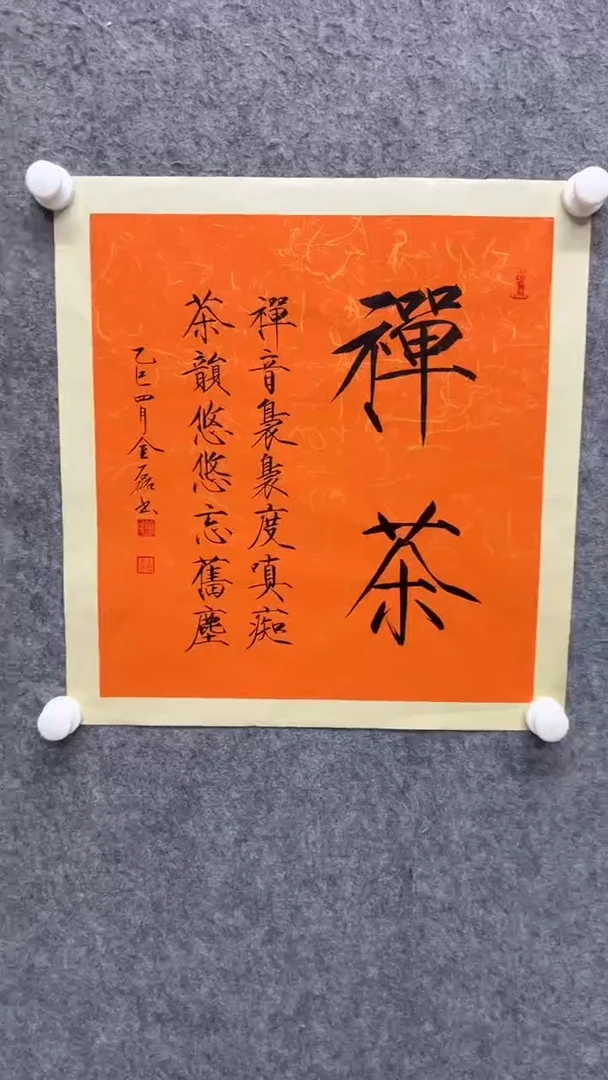 禪茶
禪音裊裊度嗔痴
茶韻悠悠忘舊塵
乙巳四月金磊书